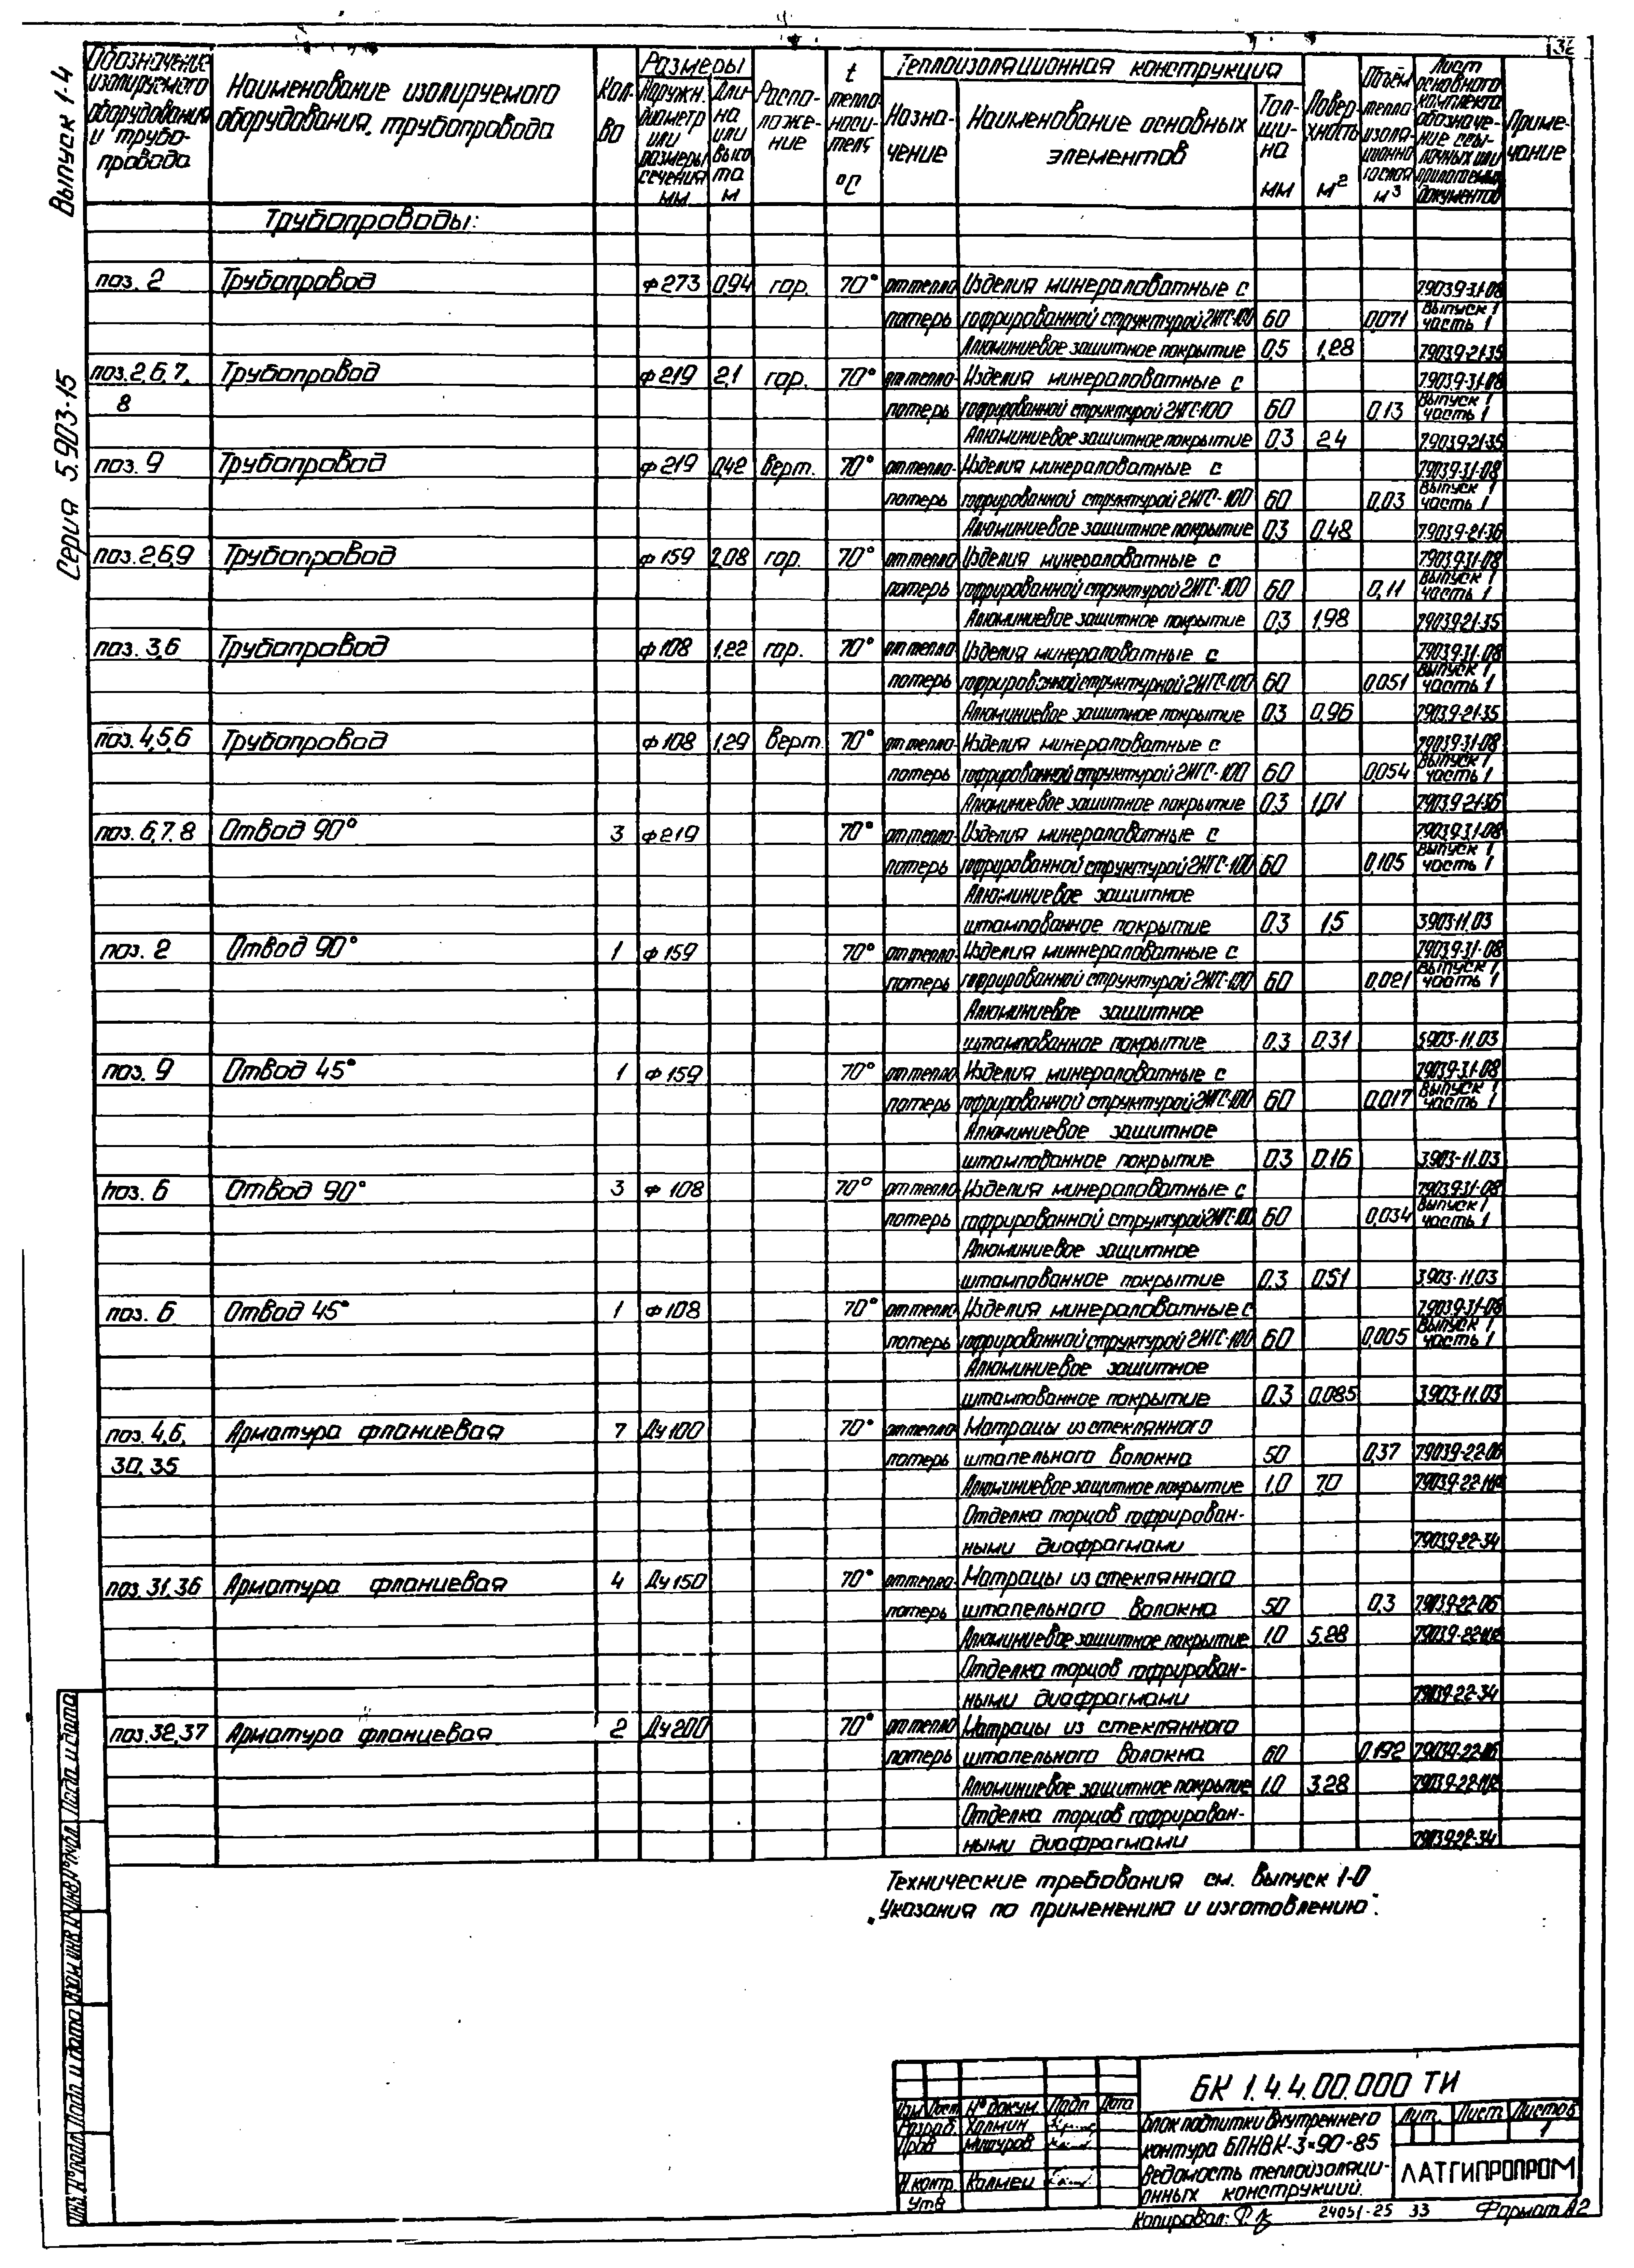 32
Выпуск 1-4
Серия 5.903-15
Обозначение изолируемого оборудования и трубопровода
Наименование изолируемого оборудования, трубопровода
Кол-во
Размеры
Наружн. диаметр или размеры сечения мм
Длина или высота м
Расположение
t теплоносителя °С
Теплоизоляционная конструкция
Назначение
Наименование основных элементов
Толщина мм
Поверхность м²
Объём теплоизоляционного слоя м³
Лист основного комплекта обозначение ссылочных или прилагаемых документов
Примечание
Трубопроводы:
поз. 2 Трубопровод ф273 0,94 гор. 70° от тепло- Изделия минераловатные с 7.903.9-3.1-08
потерь гофрированной структурой 2МГС-100 60 0,071 Выпуск 1 часть 1
Алюминиевое защитное покрытие 0,5 1,28 7.903.9-2.1-35
поз. 2,6,7, Трубопровод ф219 2,1 гор. 70° от тепло- Изделия минераловатные с 7.903.9-3.1-08
8 потерь гофрированной структурой 2МГС-100 60 0,13 Выпуск 1 часть 1
Алюминиевое защитное покрытие 0,3 2,4 7.903.9-2.1-35
поз. 9 Трубопровод ф219 0,42 Верт. 70° от тепло- Изделия минераловатные с 7.903.9-3.1-08
потерь гофрированной структурой 2МГС-100 60 0,03 Выпуск 1 часть 1
Алюминиевое защитное покрытие 0,3 0,48 7.903.9-2.1-36
поз. 2,6,9 Трубопровод ф159 2,08 гор. 70° от тепло- Изделия минераловатные с 7.903.9-3.1-08
потерь гофрированной структурой 2МГС-100 60 0,11 Выпуск 1 часть 1
Алюминиевое защитное покрытие 0,3 1,98 7.903.9-2.1-35
поз. 3,6 Трубопровод ф108 1,22 гор. 70° от тепло- Изделия минераловатные с 7.903.9-3.1-08
потерь гофрированной структурной 2МГС-100 60 0,051 Выпуск 1 часть 1
Алюминиевое защитное покрытие 0,3 0,96 7.903.9-2.1-35
поз. 4,5,6 Трубопровод ф108 1,29 Верт. 70° от тепло- Изделия минераловатные с 7.903.9-3.1-08
потерь гофрированной структурой 2МГС-100 60 0,054 Выпуск 1 часть 1
Алюминиевое защитное покрытие 0,3 1,01 7.903.9-2.1-36
поз. 6,7,8 Отвод 90° 3 ф219 70° от тепло- Изделия минераловатные с 7.903.9-3.1-08
потерь гофрированной структурой 2МГС-100 60 0,105 Выпуск 1 часть 1
Алюминиевое защитное
штампованное покрытие 0,3 1,5 3.903-11.03
поз. 2 Отвод 90° 1 ф159 70° от тепло- Изделия миннераловатные с 7.903.9-3.1-08
потерь гофрированной структурой 2МГС-100 60 0,021 Выпуск 1 часть 1
Алюминиевое защитное
штампованное покрытие 0,3 0,31 3.903-11.03
поз. 9 Отвод 45° 1 ф159 70° от тепло- Изделия минераловатные с 7.903.9-3.1-08
потерь гофрированной структурой 2МГС-100 60 0,017 Выпуск 1 часть 1
Алюминиевое защитное
штампованное покрытие 0,3 0,16 3.903-11.03
поз. 6 Отвод 90° 3 ф108 70° от тепло- Изделия минераловатные с 7.903.9-3.1-08
потерь гофрированной структурой 2МГС-100 60 0,034 Выпуск 1 часть 1
Алюминиевое защитное
штампованное покрытие 0,3 0,51 3.903-11.03
поз. 6 Отвод 45° 1 ф108 70° от тепло- Изделия минераловатные с 7.903.9-3.1-08
потерь гофрированной структурой 2МГС-100 60 0,005 Выпуск 1 часть 1
Алюминиевое защитное
штампованное покрытие 0,3 0,085 3.903-11.03
поз. 4,6, Арматура фланцевая 7 Ду100 70° от тепло- Матрацы из стеклянного
30,35 потерь штапельного волокна 50 0,37 7.903.9-2.2-06
Алюминиевое защитное покрытие 1,0 7,0
Отделка торцов гофрирован-
ными диафрагмами 7.903.9-2.2-34
поз. 31,36 Арматура фланцевая 4 Ду150 70° от тепло- Матрацы из стеклянного
потерь штапельного волокна 50 0,3 7.903.9-2.2-06
Алюминиевое защитное покрытие 1,0 5,28
Отделка торцов гофрирован-
ными диафрагмами 7.903.9-2.2-34
поз. 32,37 Арматура фланцевая 2 Ду200 70° от тепло- Матрацы из стеклянного
потерь штапельного волокна 60 0,192 7.903.9-2.2-06
Алюминиевое защитное покрытие 1,0 3,28
Отделка торцов гофрирован-
ными диафрагмами 7.903.9-2.2-34
Технические требования см. Выпуск 1-0
„Указания по применению и изготовлению".
Инв. № подл. Подп. и дата Взам. инв. № Инв. № дубл. Подп. и дата
БК 1.4.4.00.000 ТИ
Изм Лист № докум. Подп Дата
Разраб. Халмин
Пров
Н.контр. Калмец
Утв
Блок подпитки внутреннего
контура БПНВК-3×90-85
Ведомость теплоизоляци-
онных конструкций.
Лит. Лист Листов
1
ЛАТГИПРОПРОМ
Копировал: 24051-25 33 Формат А2